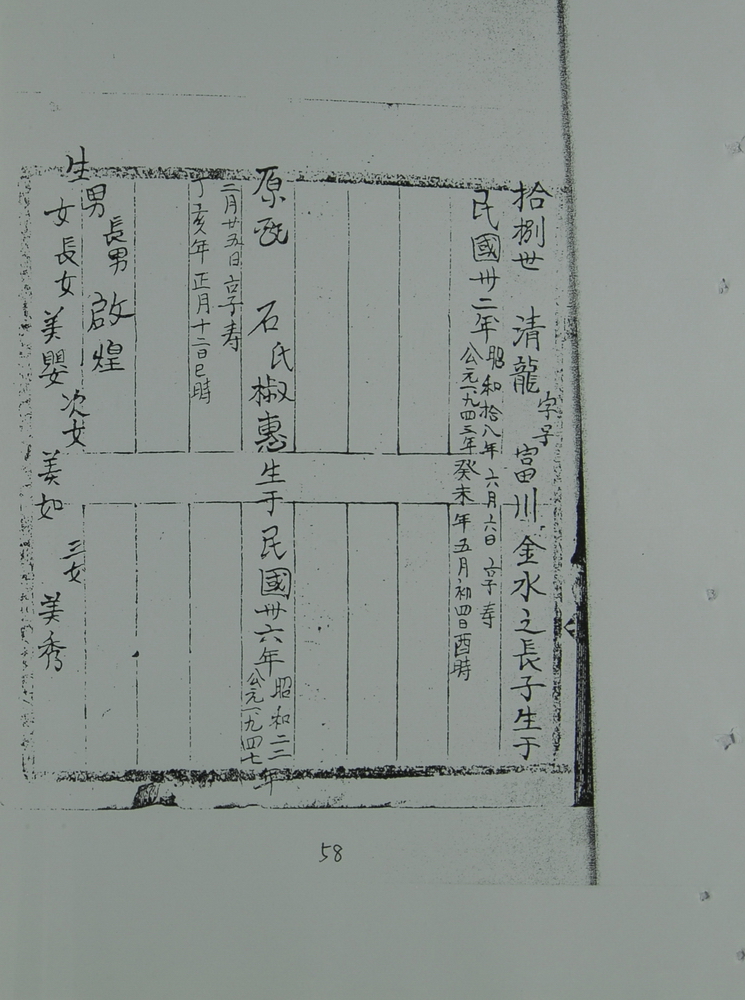 拾捌世　清龍　字号　富川　金水之長子生于
民國卅二年　昭和拾八年　六月六日　享寿
公元一九四三年癸未年五月初四日酉時
原配　石氏椒惠生于民國卅六年　昭和二二年
公元一九四七
二月廿五日　享寿
丁亥年　正月十二日巳時
生男　長男　啟煌
女　長女　美嬰　次女　美如　三女　美秀
58